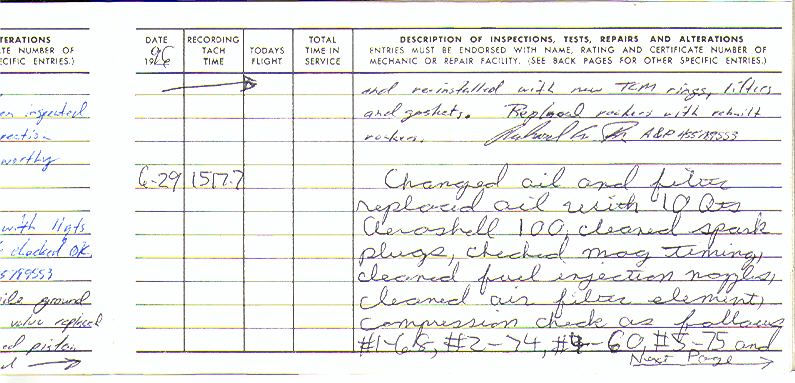 TERATIONS
TE NUMBER OF
ECIFIC ENTRIES.)
inspected
rection
worthy
with ligts
checked OK
ile ground
valve replaced
ed piston
DATE
1996
RECORDING
TACH
TIME
TODAYS
FLIGHT
TOTAL
TIME IN
SERVICE
DESCRIPTION OF INSPECTIONS, TESTS, REPAIRS AND ALTERATIONS
ENTRIES MUST BE ENDORSED WITH NAME, RATING AND CERTIFICATE NUMBER OF
MECHANIC OR REPAIR FACILITY. (SEE BACK PAGES FOR OTHER SPECIFIC ENTRIES.)
and reinstalled with new TCM rings, lifters
and gaskets. Replaced rockers with rebuilt
rockers. A&P
6-29 1517.7 Changed oil and filter
replaced oil with 10 Qts
Aeroshell 100, cleaned spark
plugs, checked mag timing,
cleaned fuel injection nozzles,
cleaned air filter element,
compression check as follows
#1-68, #2-74, #4-60, #5-75 and
Next Page